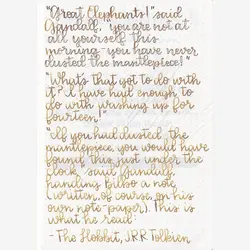 "Great Elephants!" said
Gandalf, "you are not at
all yourself this
morning-you have never
dusted the mantlepiece!"
"What's that got to do with
it? I have had enough to
do with washing up for
fourteen!"
"If you had dusted the
mantelpiece, you would have
found this just under the
clock," said Gandalf,
handing Bilbo a note
(written, of course, on his
own note-paper). This is
what he read:
- The Hobbit, J.R.R Tolkien